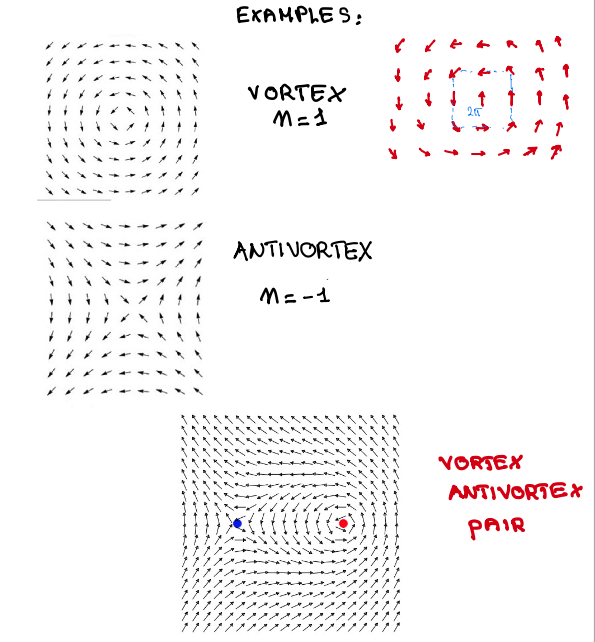 EXAMPLES:
VORTEX
n=1
2π
ANTIVORTEX
n=-1
VORTEX
ANTIVORTEX
PAIR